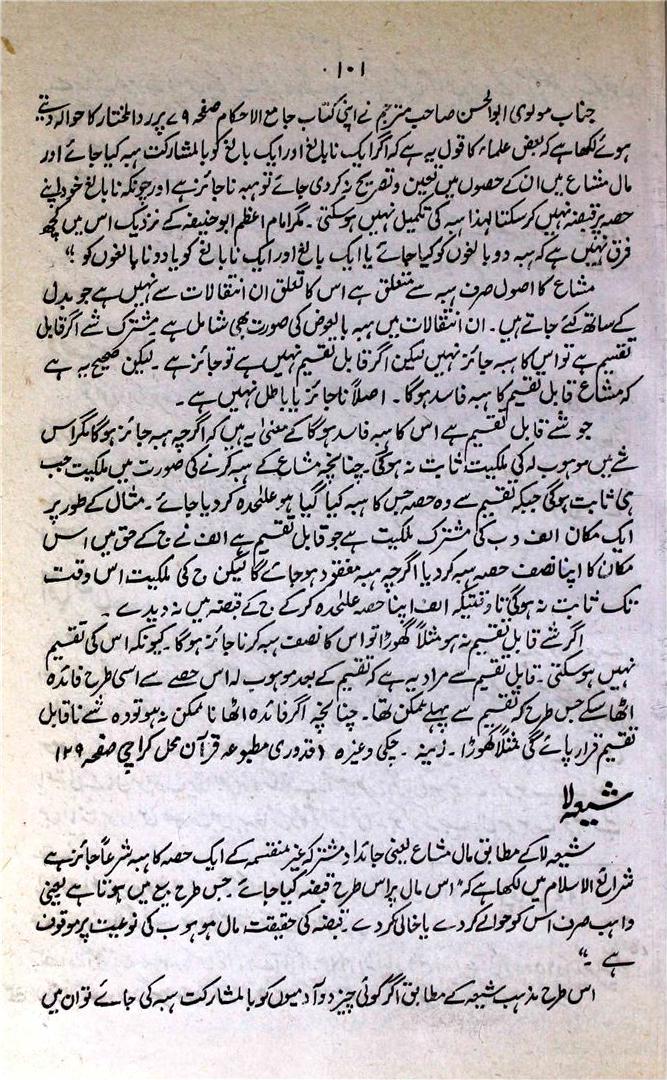 ۱۰۱
جناب مولوی ابوالحسن صاحب مترجم نے اپنی کتاب جامع الاحکام صفحہ ۷۹ پر ردالمختار کا حوالہ دیتے
ہوئے لکھا ہے کہ بعض علماء کا قول یہ ہے کہ اگر ایک نابالغ اور ایک بالغ کو بالمشارکت ہبہ کیا جائے اور
مال مشاع میں ان کے حصوں میں تعیین و تصریح نہ کر دی جائے تو ہبہ ناجائز ہے اور چونکہ نابالغ خود اپنے
حصہ پر قبضہ نہیں کر سکتا لہذا ہبہ کی تکمیل نہیں ہو سکتی۔ مگر امام اعظم ابو حنیفہ کے نزدیک اس میں کچھ
فرق نہیں ہے کہ ہبہ دو بالغوں کو کیا جائے یا ایک بالغ اور ایک نابالغ کو یا دو نابالغوں کو"
مشاع کا اصول صرف ہبہ سے متعلق ہے اس کا تعلق ان انتقالات سے نہیں ہے جو بدل
کے ساتھ کئے جاتے ہیں۔ ان انتقالات میں ہبہ بالعوض کی صورت بھی شامل ہے مشترک شے اگر قابل
تقسیم ہے تو اس کا ہبہ جائز نہیں لیکن اگر قابل تقسیم نہیں ہے تو جائز ہے۔ لیکن صحیح یہ ہے
کہ مشاع قابل تقسیم کا ہبہ فاسد ہوگا۔ اصلاً ناجائز یا باطل نہیں ہے۔
جو شے قابل تقسیم ہے اس کا ہبہ فاسد ہوگا کے معنی یہ ہیں کہ اگرچہ ہبہ جائز ہوگا مگر اس
شے میں موہوب لہ کی ملکیت ثابت نہ ہوگی۔ چنانچہ مشاع کے ہبہ کرنے کی صورت میں ملکیت جب
ہی ثابت ہوگی جبکہ تقسیم سے وہ حصہ جس کا ہبہ کیا گیا ہو علٰحدہ کر دیا جائے۔ مثال کے طور پر
ایک مکان الف و ب کی مشترک ملکیت ہے جو قابل تقسیم ہے الف نے ج کے حق میں اس
مکان کا اپنا نصف حصہ ہبہ کر دیا اگرچہ ہبہ معقود ہو جائے گا لیکن ج کی ملکیت اس وقت
تک ثابت نہ ہوگی تا وقتیکہ الف اپنا حصہ علٰحدہ کر کے ج کے قبضہ میں نہ دیدے۔
اگر شے قابل تقسیم نہ ہو مثلاً گھوڑا تو اس کا نصف ہبہ کرنا جائز ہوگا۔ کیونکہ اس کی تقسیم
نہیں ہو سکتی۔ قابل تقسیم سے مراد یہ ہے کہ تقسیم کے بعد موہوب لہ اس حصے سے اسی طرح فائدہ
اٹھا سکے جس طرح کہ تقسیم سے پہلے ممکن تھا۔ چنانچہ اگر فائدہ اٹھانا ممکن نہ ہو تو وہ شے ناقابل
تقسیم قرار پائے گی مثلاً گھوڑا۔ زینہ۔ چکی وغیرہ (قدوری مطبوعہ قرآن محل کراچی صفحہ ۱۲۹
شیعہ لا
شیعہ لا کے مطابق مال مشاع یعنی جائداد مشترکہ غیر منقسمہ کے ایک حصہ کا ہبہ شرعاً جائز ہے
شرائع الاسلام میں لکھا ہے کہ "اس مال پر اس طرح قبضہ کیا جائے۔ جس طرح بیع میں ہوتا ہے یعنی
واہب صرف اس کو حوالے کر دے یا خالی کر دے۔ قبضہ کی حقیقت، مال موہوب کی نوعیت پر موقوف
ہے۔"
اس طرح مذہب شیعہ کے مطابق اگر کوئی چیز دو آدمیوں کو بالمشارکت ہبہ کی جائے تو ان میں